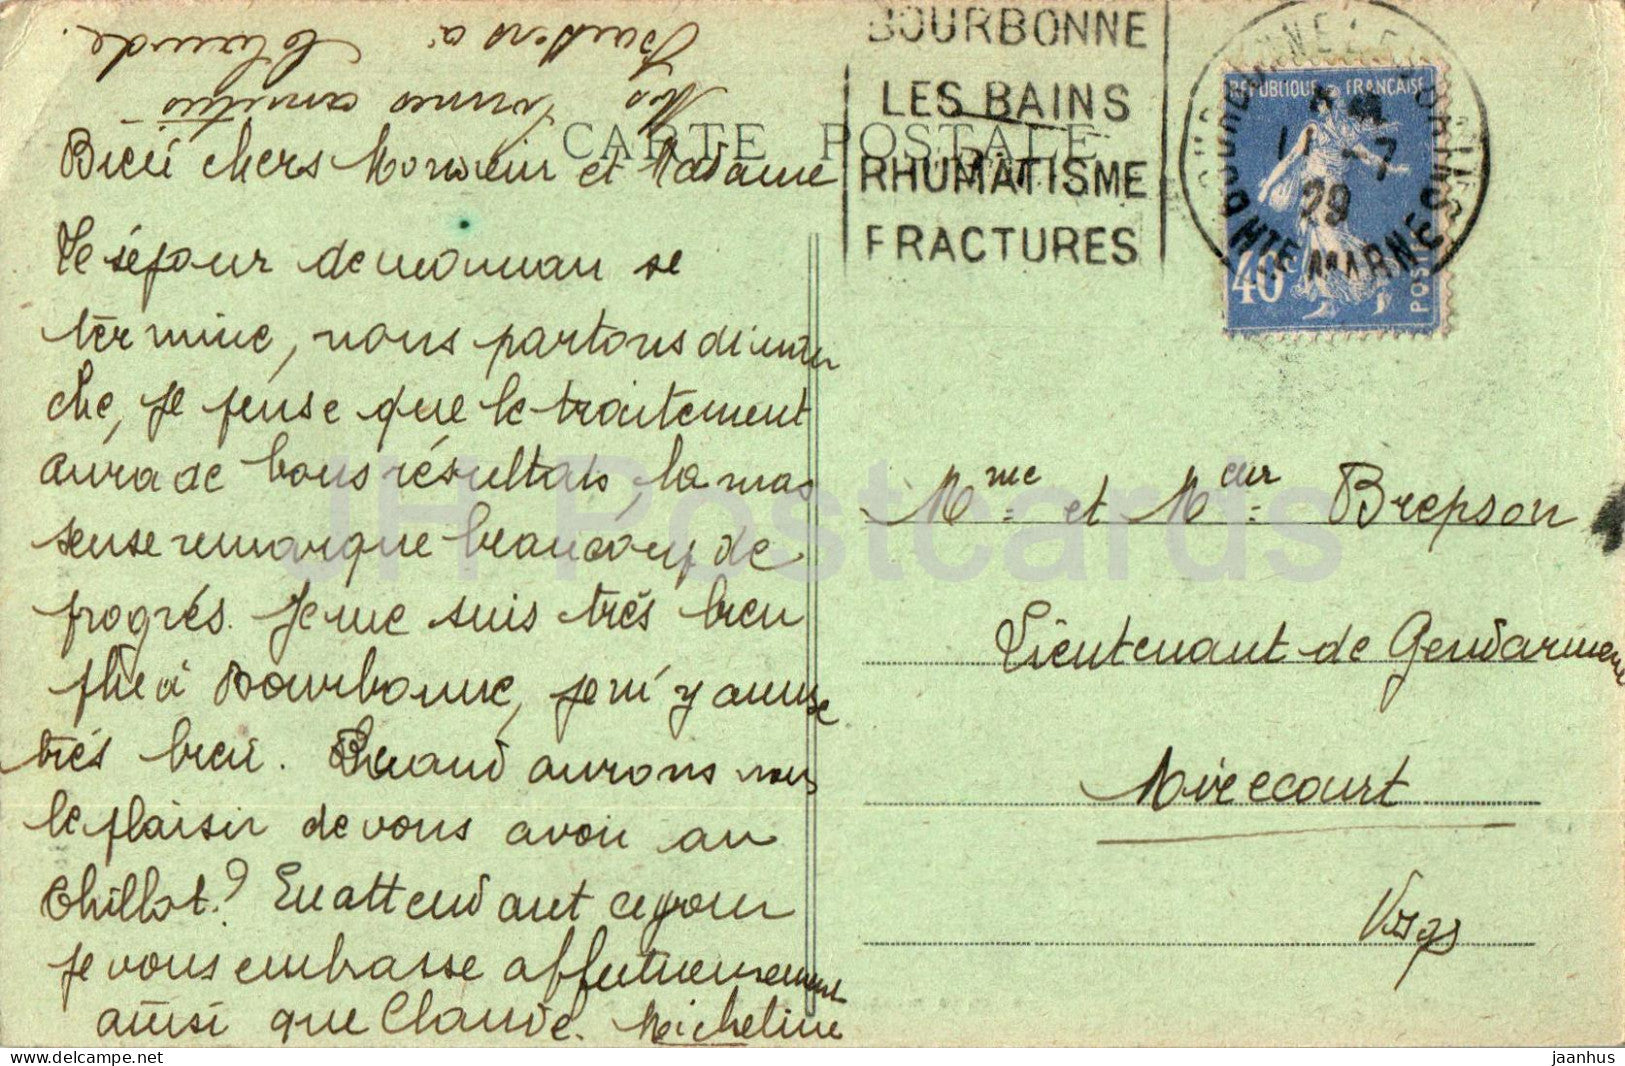 Mes bonnes amitiés
Baisers à
Claude.
CARTE POSTALE
Bien chers Monsieur et Madame
Le séjour de maman se
termine, nous partons diman
che, je pense que le traitement
aura de bons résultats, la mas
seuse remarque beaucoup de
progrés. Je me suis très bien
plue à Bourbonne, je m'y amuse
très bien. Quand aurons nous
le plaisir de vous avoir au
Thillot? En attendant ce jour
je vous embrasse affectueusement
ainsi que Claude. Micheline
BOURBONNE
LES BAINS
RHUMATISME
FRACTURES
REPUBLIQUE FRANÇAISE
40
POSTES
11 -7
29
HTE MARNE
Mme et Mr Brepson
Lieutenant de Gendarmerie
Mirecourt
Vosges
JH Postcards
delcampe.net
jaanhus